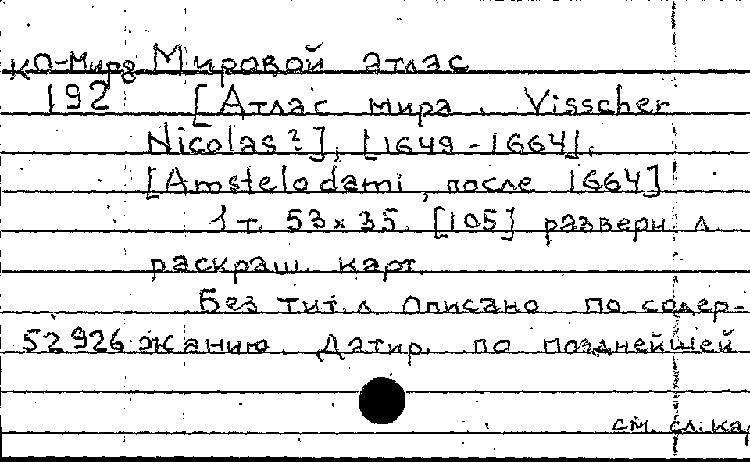 КО-Мир8 Мировой атлас
192 [Атлас мира. Visscher
Nicolas?], [1649-1664].
[Amstelodami, после 1664]
1 т. 53x35. [105] разверн. л.
раскраш. карт.
Без тит. л. Описано по содер-
52926 жанию. Датир. по позднейшей
см. сл. ка